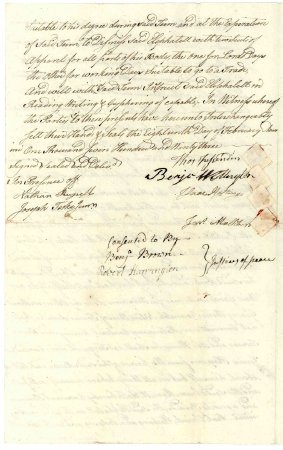 Suitable to his degree during Said Term and at the expiration
of Said Term, To Dismiss Said Eliphalett with two Suits of
Apparel for all parts of his Body, the one for Lords Days
the other for working Days Suitable to go to a Trade
And will with Said Term Instruct Said Eliphalett in
Reading Writing & Cyphering if capable. In Witness whereof
the Parties to these presents have hereunto Interchangeably
Sett their Hands & Seals the Eighteenth Day of February Anno
One Thousand Seven Hundred and Ninety three
Signed Sealed and Deliv'd
In Presence off
Benj'n
Nathan
Joseph
Consented to By
Benj'n Brown
Robert Harrington
Justices of peace